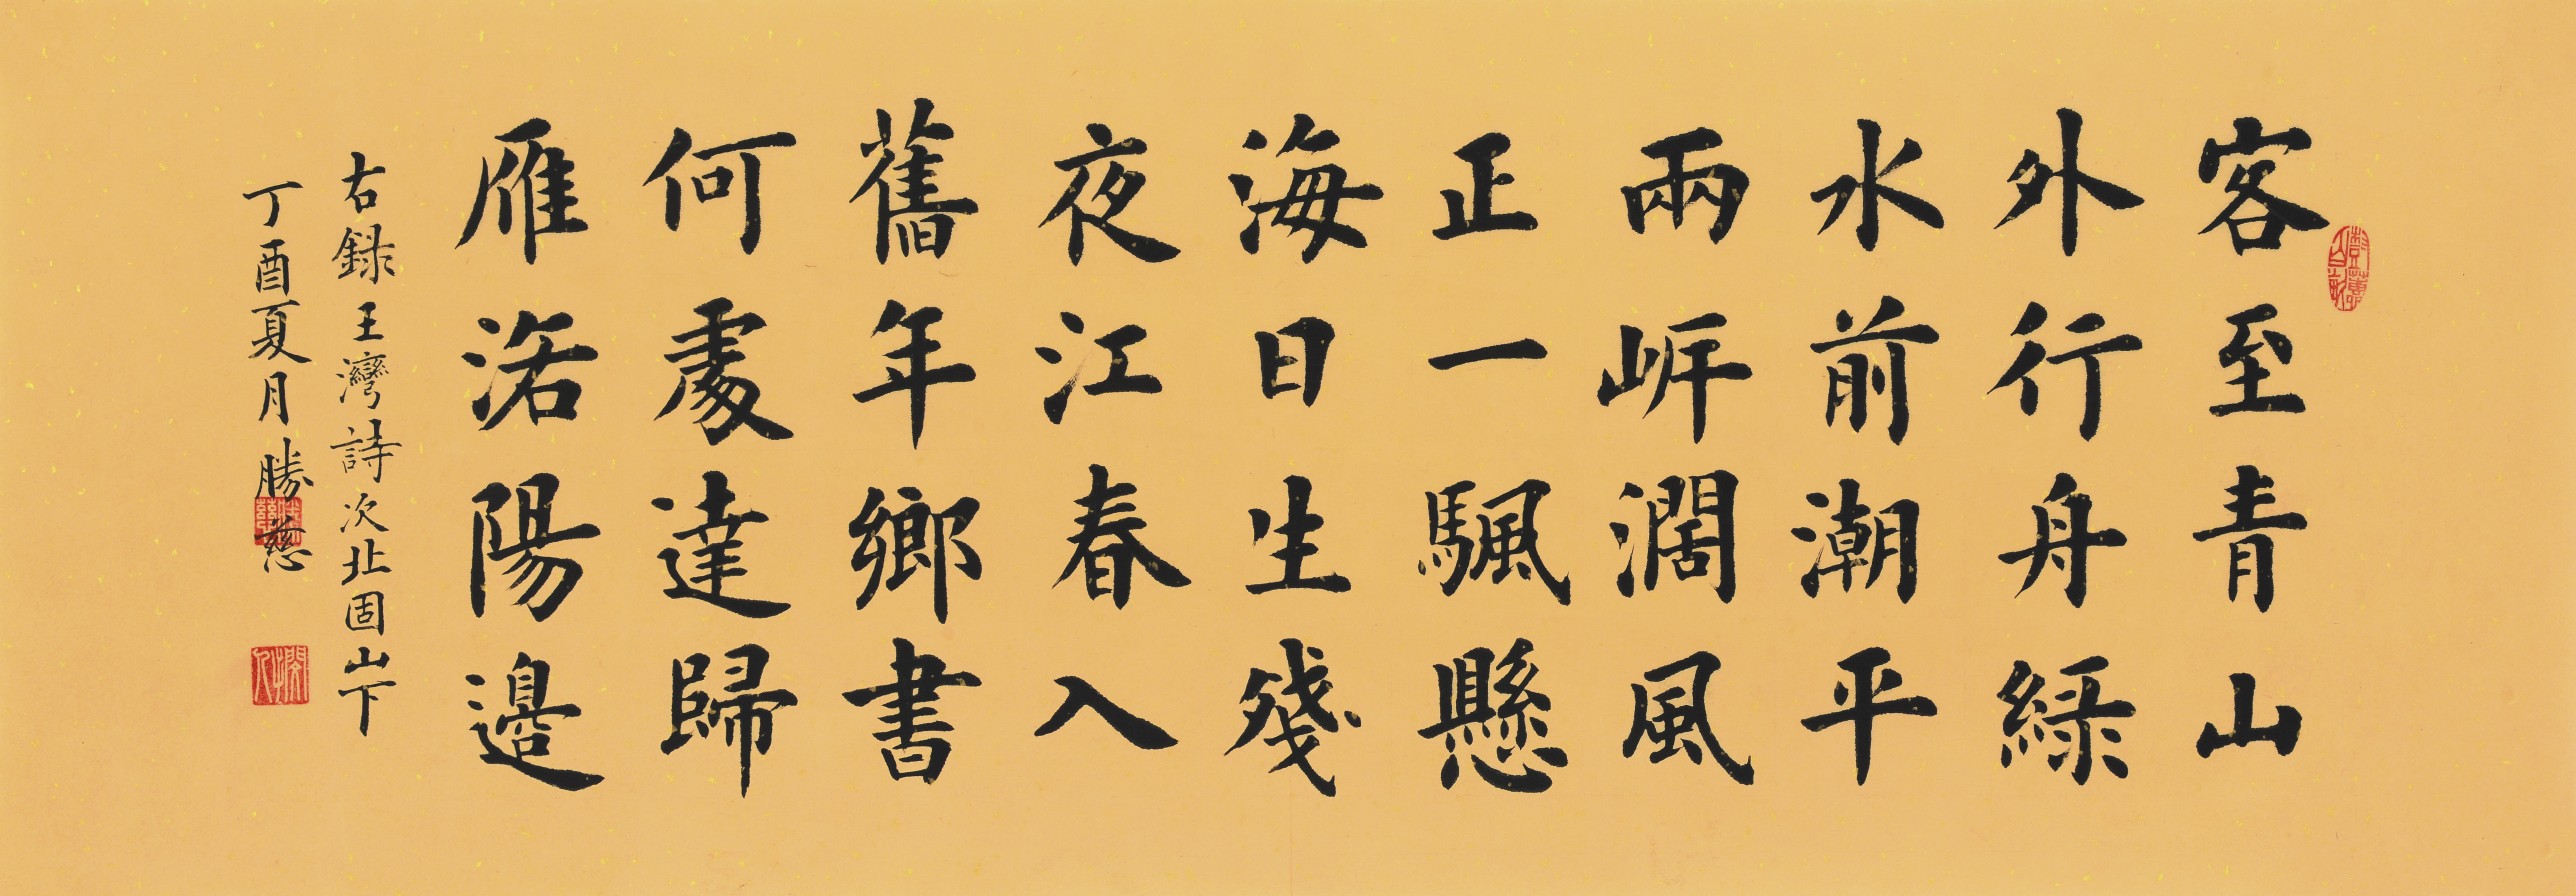 客至青山
外行舟緑
水前潮平
兩岸濶風
正一颿懸
海日生殘
夜江春入
舊年鄉書
何處達歸
雁洛陽邊
右録王灣詩次北固山下
丁酉夏月勝慈